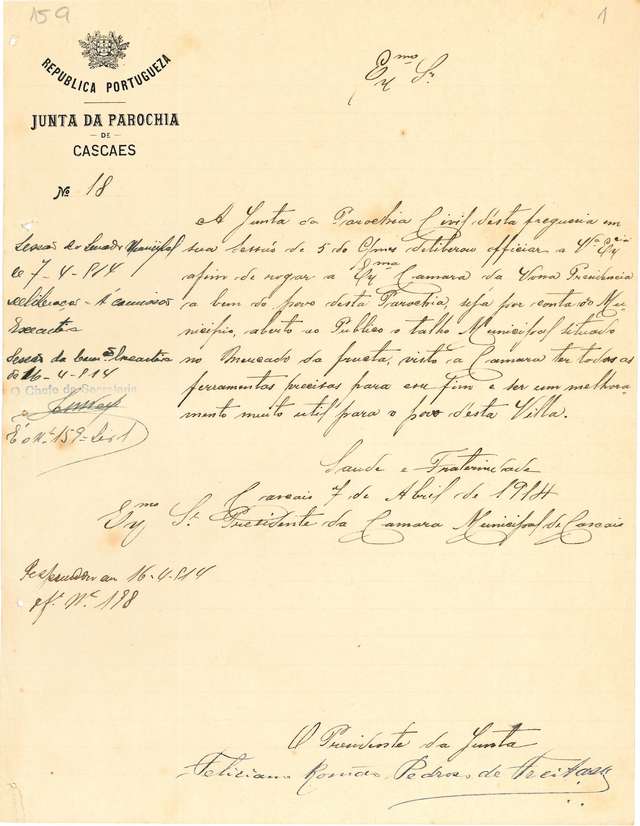 159
1
REPUBLICA PORTUGUEZA
JUNTA DA PAROCHIA
DE
CASCAES
Nº 18
Exmo Sr
A Junta da Parochia Civil désta freguezia em
sua sessão de 5 do deliberou officiar a V Ex
afim de rogar a Exma Camara da Presidencia
a bem do povo desta Parochia, seja por conta do Mu-
nicipio, aberto ao Publico o talho Municipal situado
no Mercado da fructa, visto a Camara ter todas as
ferramentas precisas para esse fim e ser um melhora-
mento muito util para o povo desta Villa.
Saude e Fraternidade
Cascais 7 de Abril de 1914
Exmo Sr Presidente da Camara Municipal de Cascais
Sessão do Senado Municipal
de 7-4-914
deliberação - Á comissão
Executiva
Sessão da Com Executiva
de 16-4-914
O Chefe da Secretaria
É o nº 159
Respondido em 16-4-914
of. Nº 198
O Presidente da Junta
Feliciano Romão Pedroso de Freitas